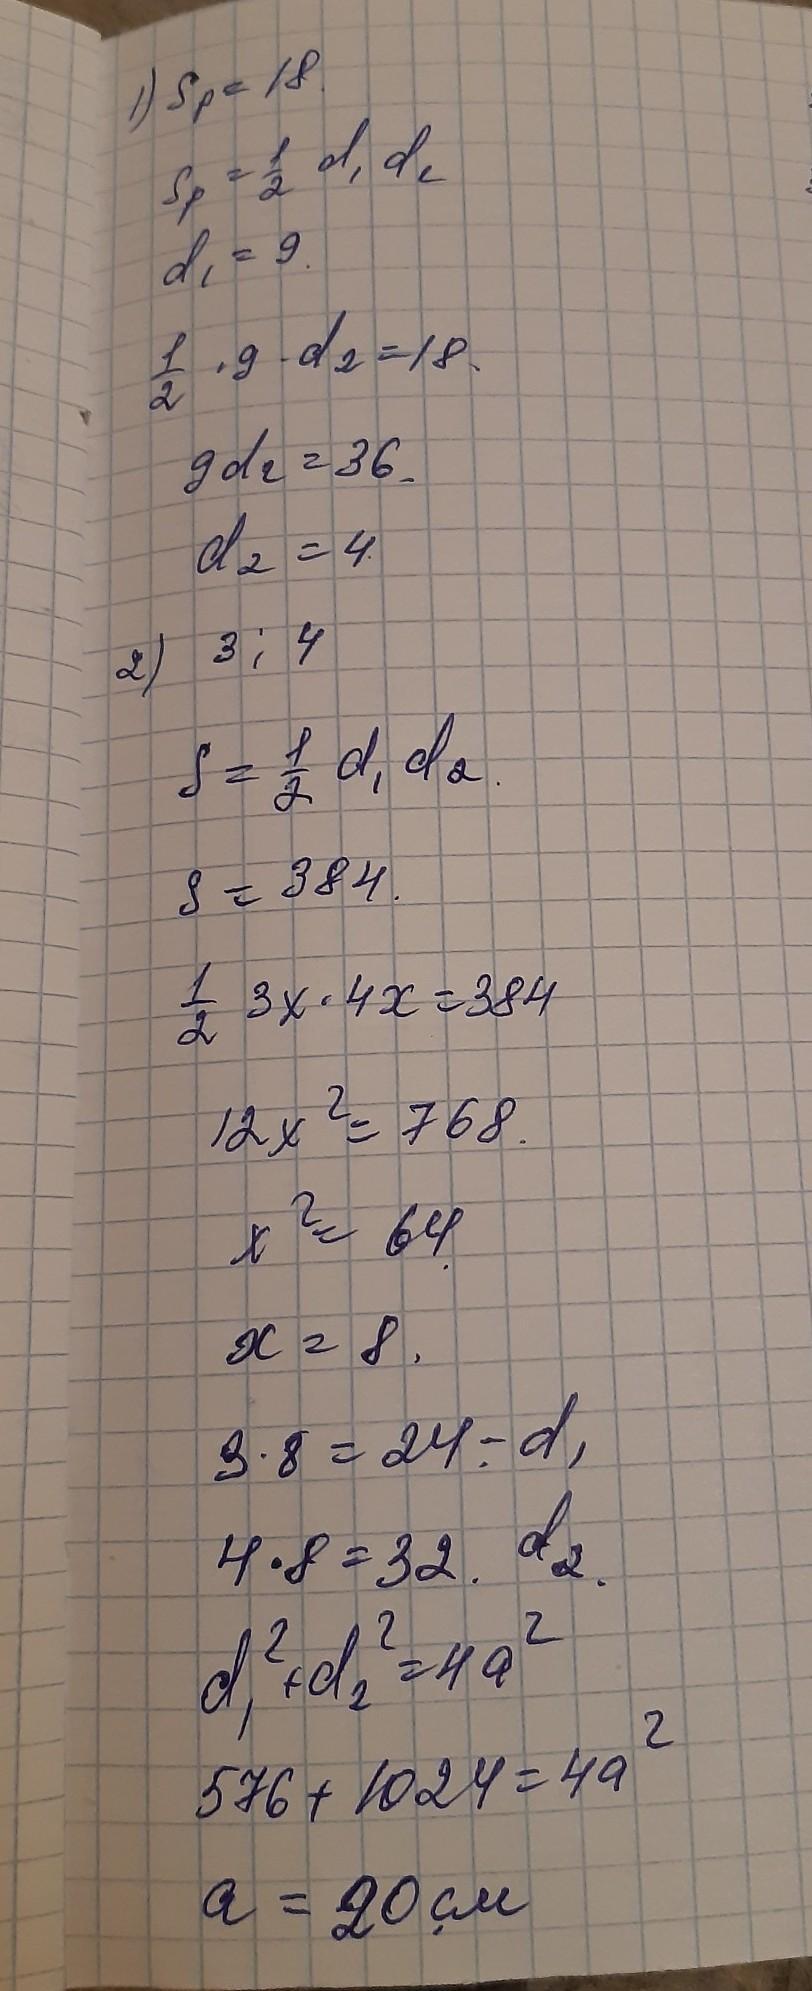 1) Sр = 18.
Sр = 1/2 d₁ d₂
d₁ = 9.
1/2 · 9 · d₂ = 18.
9d₂ = 36.
d₂ = 4.
2) 3 ; 4
S = 1/2 d₁ d₂.
S = 384.
1/2 3x · 4x = 384
12x² = 768.
x² = 64.
x = 8.
3·8 = 24 - d₁
4·8 = 32. d₂.
d₁² + d₂² = 4a²
576 + 1024 = 4a²
a = 20 см